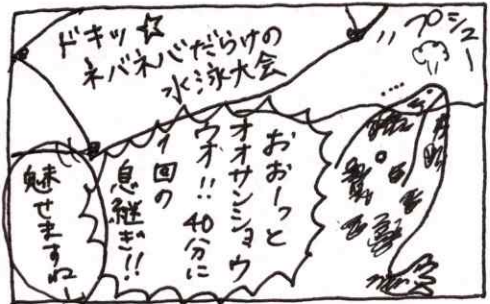 ドキッ☆
ネバネバだらけの
水泳大会
プシュー
…
おおーっと
オオサンショウ
ウオ!! 40分に
1回の
息継ぎ!!
魅せますねー